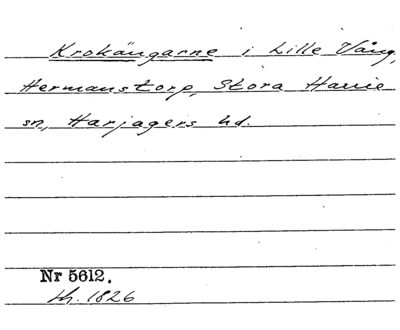 Krokängarne i Lille Vång,
Hermanstorp, Stora Harrie
sn, Harjagers hd.
Nr 5612.
lh. 1826